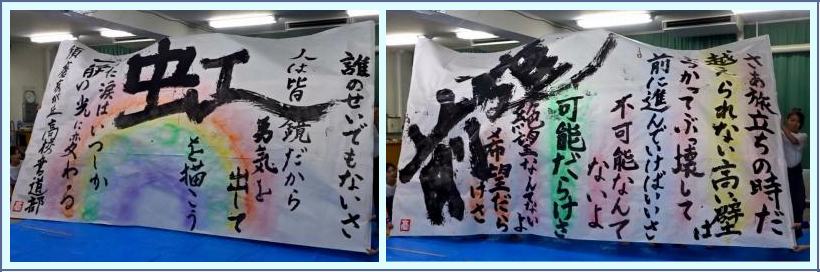 誰のせいでもないさ
人は皆鏡だから
勇気を
出して
虹
を描こう
た涙はいつしか
一筋の光に変わる
高校書道部
さあ旅立ちの時だ
越えられない高い壁は
かってぶっ壊して
前に進んでいけばいいさ
不可能なんて
ないよ
可能だらけさ
絶望なんかないよ
希望だら
けさ
前進